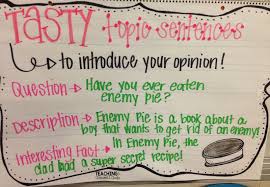 TASTY topic sentences
to introduce your opinion!
Question → Have you ever eaten
enemy pie?
Description → Enemy Pie is a book about a
boy that wants to get rid of an enemy!
Interesting Fact → In Enemy Pie, the
dad had a super secret recipe!
TEACHING